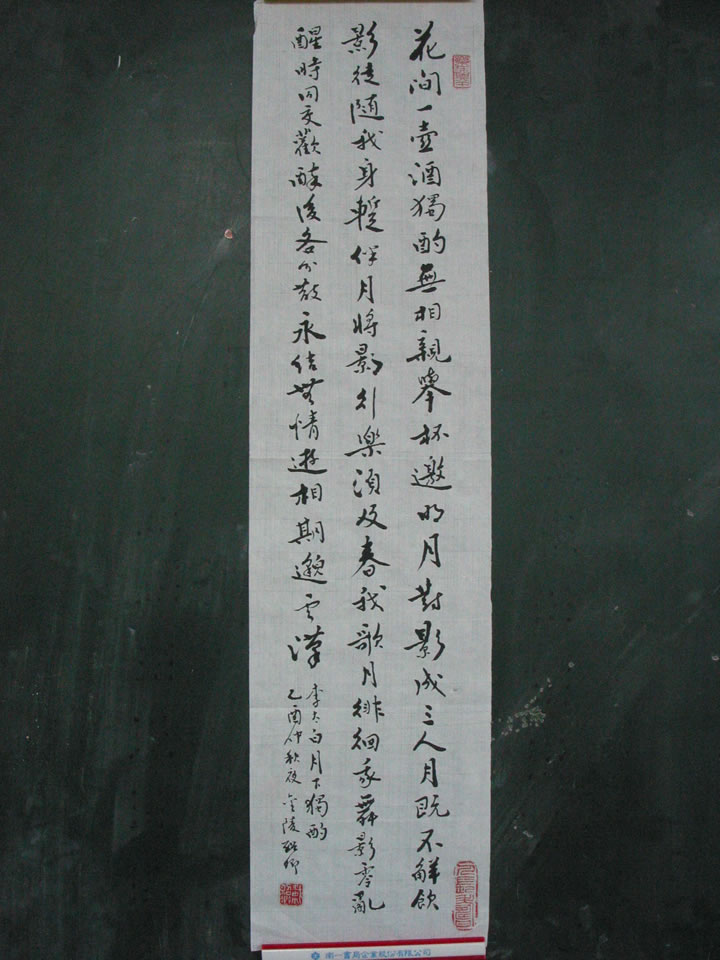 花間一壺酒獨酌無相親舉杯邀明月對影成三人月既不解飲
影徒隨我身暫伴月將影行樂須及春我歌月徘徊我舞影零亂
醒時同交歡醉後各分散永結無情遊相期邈雲漢
李太白月下獨酌
乙酉仲秋夜金陵
南一書局企業股份有限公司